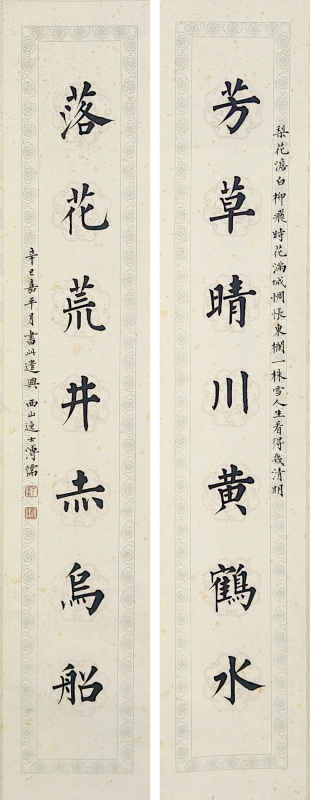 芳草晴川黄鶴水
梨花澹白柳飛時花滿城惆悵東欄一株雪人生看得幾清明
落花荒井赤烏船
辛巳嘉平月書此遣興 西山逸士溥儒